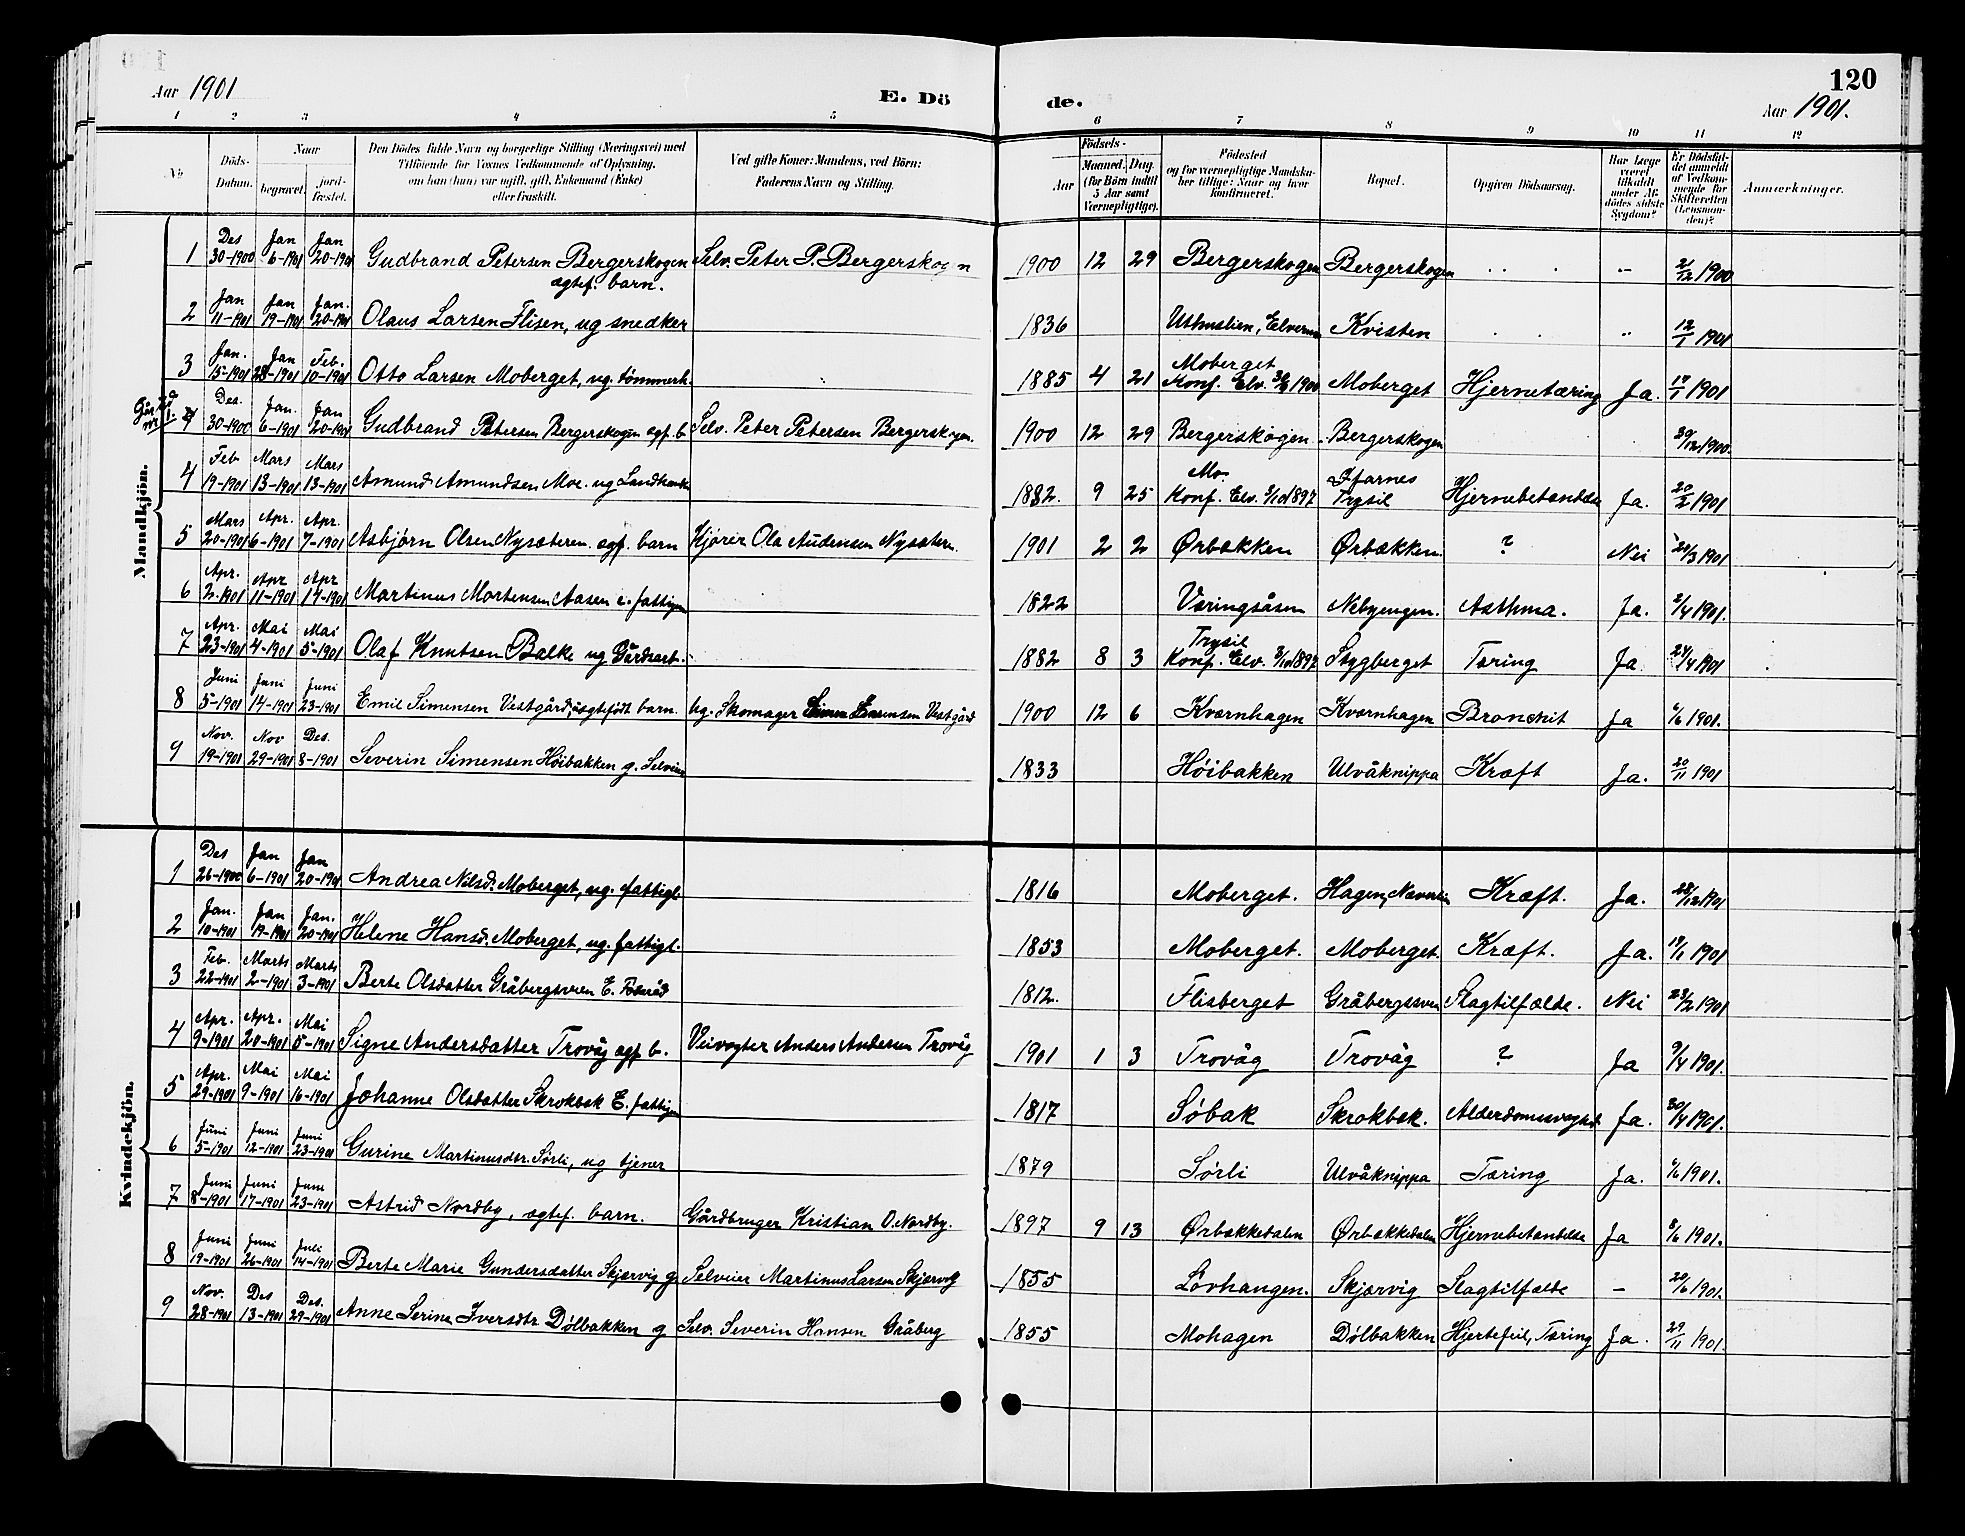 Aar 1901
E. Dö de.
120
Aar 1901.
1 2 3 4 5 6 7 8 9 10 11 12
No
Döds-Datum.
Naar
begravet.
jord-fæstet.
Den Dödes fulde Navn og borgerlige Stilling (Næringsvei) med
Tilföiende for Voxnes Vedkommende af Oplysning,
om han (hun) var ugift, gift, Enkemand (Enke)
eller fraskilt.
Ved gifte Koner: Mandens, ved Börn:
Faderens Navn og Stilling.
Födsels-
Aar
Maaned. Dag.
(for Börn indtil
5 Aar samt
Værnepligtige).
Födested
og for værnepligtige Mandskaber tillige: Naar og hvor
konfirmeret.
Bopæl.
Opgiven Dödsaarsag.
Har Læge
været
tilkaldt
under Afdödes sidste
Sygdom?
Er Dödsfaldet anmeldt
af Vedkommende for
Skifteretten
(Lensmanden)?
Anmærkninger.
Mandkjön.
1 Des 30-1900 Jan 6-1901 Jan 20-1901 Gudbrand Petersen Bergerskogen ægtef. barn. Selv. Peter P. Bergerskogen 1900 12 29 Bergerskogen Bergerskogen 1900
2 Jan 11-1901 Jan 19-1901 Jan. 20-1901 Olaus Larsen Flisen, ug snedker 1836 Elverum Kvisten 12/1 1901
3 Jan. 15-1901 Jan 28-1901 Feb. 10-1901 Otto Larsen Moberget, ug. tømmerh. 1885 4 21 Moberget Konf. Elv. 1900 Moberget Hjernetæring Ja. 17/1 1901
Des. 30-1900 Jan. 6-1901 Jan 20-1901 Gudbrand Petersen Bergerskogen egf. b Selv. Peter Petersen Bergerskogen. 1900 12 29 Bergerskogen Bergerskogen 30/12 1900.
4 Feb 19-1901 Mars 13-1901 Mars 13-1901 Amund Amundsen Moe. ug Landhandler 1882. 9 25 Mo. Konf. Elv. 1897 Trysil Hjernebetændelse Ja. 20/2 1901
5 Mars 20-1901 Apr. 6-1901 Apr. 7-1901 Asbjørn Olsen Nysæteren. egf. barn Kjører Ola Audensen Nysæteren. 1901 2 2 Ørbækken Ørbækken. ? Nei 24/3 1901
6 Apr. 2-1901 Apr 11-1901 Apr 14-1901 Martinus Mortensen Aasen e. fattigm 1822 Væringsåsen Nebyengen. Asthma. Ja. 2/4 1901.
7 Apr. 23-1901 Mai 4-1901 Mai 5-1901 Olaf Knutsen Bakke ug Gårdsarb. 1882 8 3 Trysil Konf. Elv. 1897 Stygberget Tæring Ja 24/4 1901
8 Juni 5-1901 Juni 14-1901 Juni 23-1901 Emil Simensen Vestgård, uægtefödt barn. ug. Skomager Simensen Vestgård 1900 12 6 Kværnhagen Kværnhagen Bronchit Ja 6/6 1901.
9 Nov. 19-1901 Nov 29-1901 Des. 8-1901 Severin Simensen Høibakken g. Selveier 1833 Høibakken Ulvåknippa Kræft Ja. 20/11 1901
Kvindekjön.
1 Des 26-1900 Jan 6-1901 Jan 20-1901 Andrea Nilsd. Moberget, ug. fattigl. 1816 Moberget. Hagen, Næverlien Kræft. Ja. 28/12 1901
2 Jan. 10-1901 Jan 19-1901 Jan. 20-1901 Helene Hansd. Moberget, ug. fattigl. 1853 Moberget. Moberget. Kræft. Ja. 1901
3 Feb. 22-1901 Marts 2-1901 Marts 3-1901 Berte Olsdatter Gråbergsveen E. 1812. Flisberget Gråbergsveen Slagtilfælde. Nei 23/2 1901
4 Apr. 9-1901 Apr. 20-1901 Mai 5-1901 Signe Andersdatter Trovåg egf b. Veivogter Anders Andersen Trovåg 1901 1 3 Trovåg Trovåg ? Ja 9/4 1901.
5 Apr. 29-1901 Mai 9-1901 Mai 16-1901 Johanne Olsdatter Skrokbæk E. fattigm 1817 Søbak Skrokbæk. Alderdomssvaghed Ja. 30/4 1901.
6 Juni 5-1901 Juni 12-1901 Juni 23-1901 Gurine Martinusdtr. Sørli, ug tjener 1879 Sørli Ulvåknippa Tæring Ja. 6/6 1901.
7 Juni 8-1901 Juni 17-1901 Juni 23-1901 Astrid Nordby, ægtef. barn. Gårdbruger Kristian O. Nordby. 1897 9 13 Ørbækkedalen Ørbækkedalen Hjernebetændelse Ja 8/6 1901.
8 Juni 19-1901 Juni 26-1901 Juli 14-1901 Berte Marie Gundersdatter Skjærvig g Selveier Martinus Larsen Skjærvig 1855 Lövhaugen. Skjærvig Slagtilfælde - 20/6 1901.
9 Nov. 28-1901 Des 13-1901 Des. 29-1901 Anne Serine Iversdtr Dølbakken g Selv. Severin Hansen Gråberg 1855 Mohagen Dølbakken Hjertefeil, Tæring Ja. 29/11 1901.